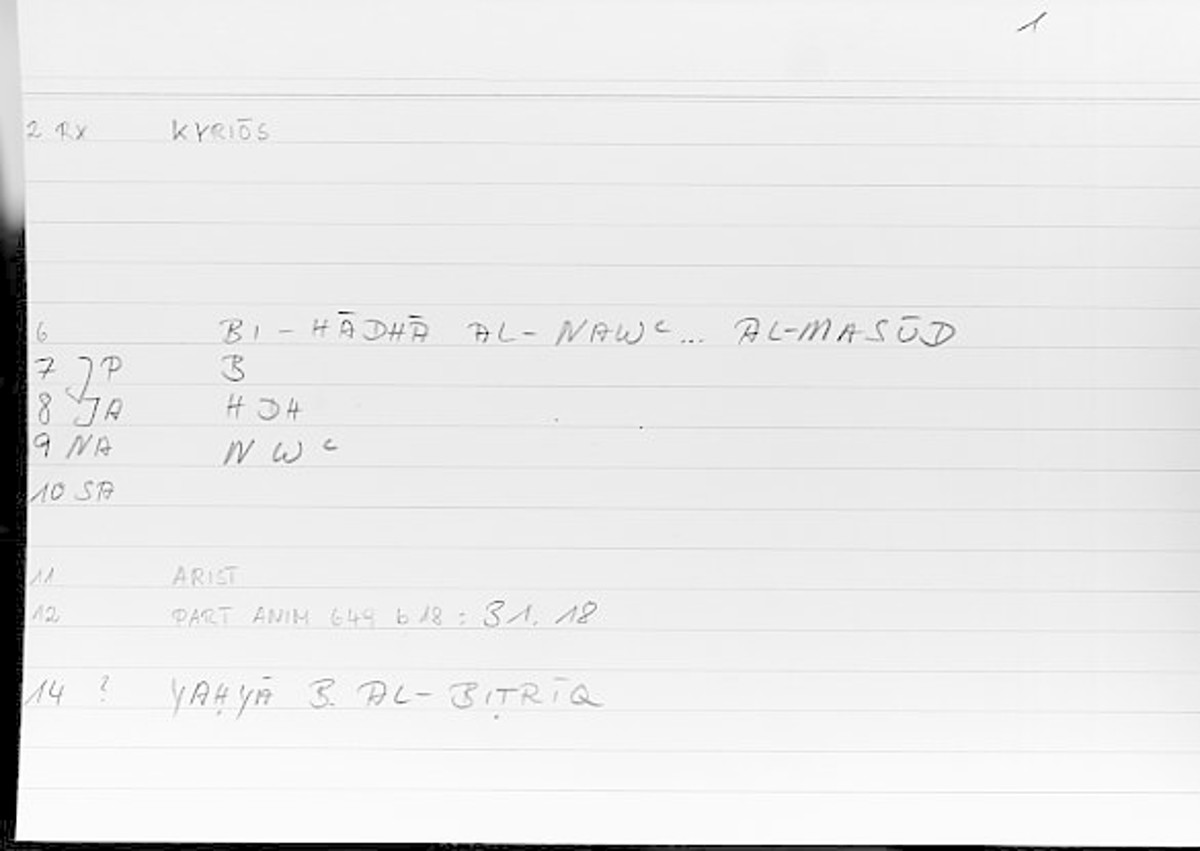 1
2 RX KYRIŌS
6 BI - HĀDHĀ AL - NAWᶜ ... AL-MASŪD
7 P B
8 JA H DH
9 NA N W ᶜ
10 SA
11 ARIST
12 PART ANIM 649 b 18 : 31. 18
14 ? YAḤYĀ B. AL - BIṬRĪQ